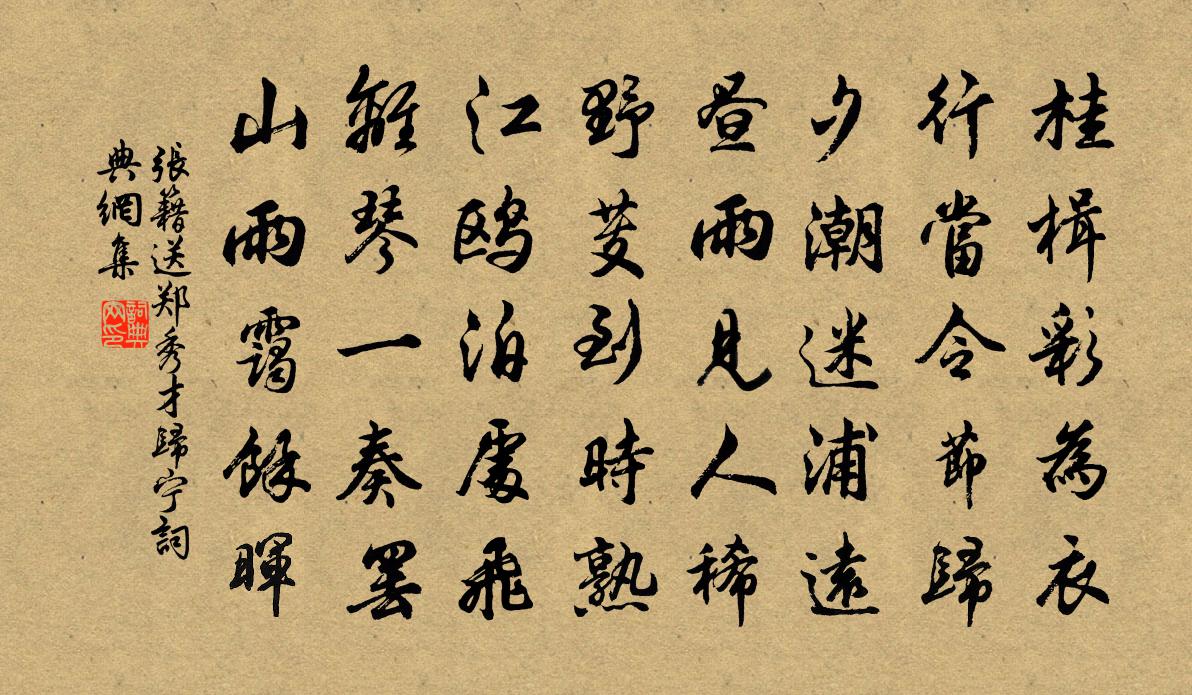 桂楫彩為衣
行當令節歸
夕潮迷浦遠
昼雨見人稀
野芰到時熟
江鷗泊處飛
離琴一奏罷
山雨靄餘暉
張籍送郑秀才歸宁詞
典網集
詞典
网印